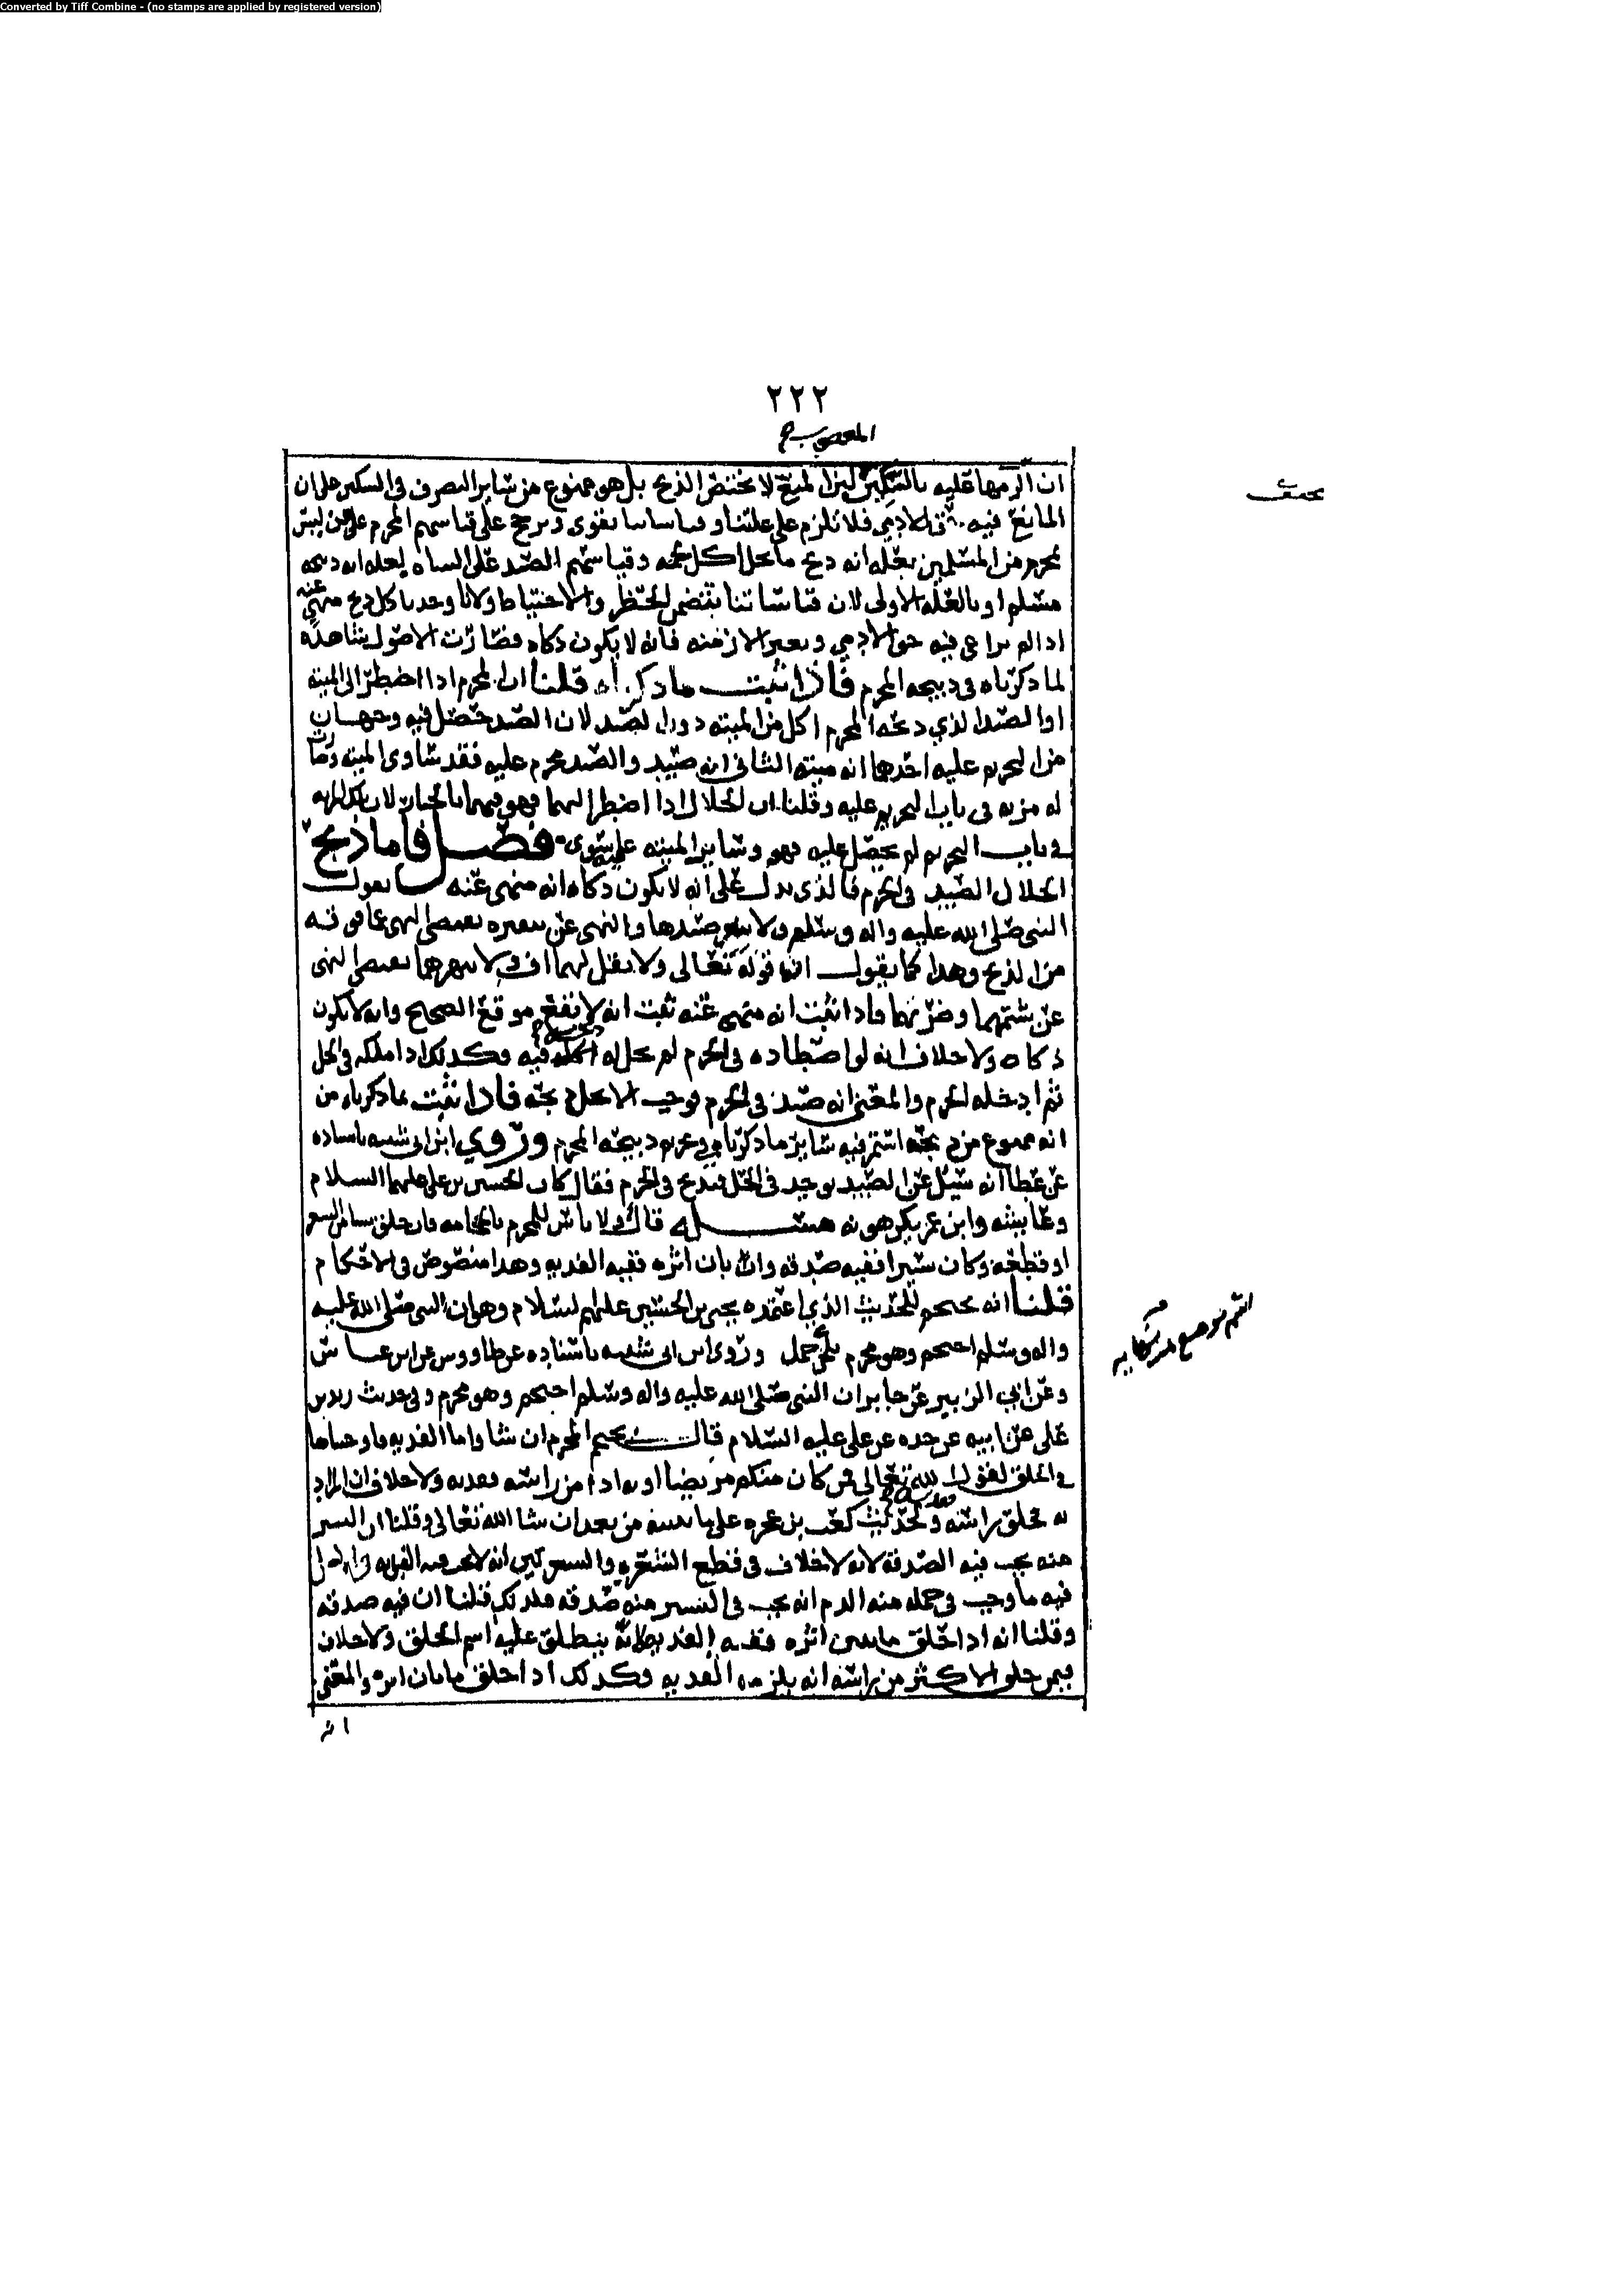 Converted by Tiff Combine - (no stamps are applied by registered version)
٢٢٢
ان الزمها عليه بالسكين لان المنع لا يختص الذبح بل هو ممنوع من سائر التصرف في السكين على ان
المانع فيه حق الادمي فلا يلزم على علتنا وقياساتنا تقوى وترجح على قياسهم المحرم على من ليس
بمحرم من المسلمين بعلة انه ذبح ما يحل اكل لحمه وقياسهم الصيد على الشاه لعله انه ذبحه
مسلم او بالعلة الاولى لان قياساتنا تقتضي الحظر والاحتياط ولانا وجدنا كل ذبح منهي عنه
اذا لم يراعى فيه حق الادمي وتعبر الازمنه فانه لا يكون ذكاه فصارت الاصول شاهدة
لما ذكرناه في ذبيحه المحرم فاذا ثبت ما ذكرناه قلنا ان المحرم اذا اضطر الى الميته
او الصيد الذي ذبحه المحرم اكل من الميته دون الصيد لان الصيد حصل فيه وجهان
من التحريم عليه احدهما انه ميته الثاني انه صيد والصيد محرم عليه فقد ساوى الميته وصارت
له مزيه في باب التحريم عليه وقلنا ان الحلال اذا اضطر اليهما فهو فيهما بالخيار لان تلك المزيه
في باب التحريم لم يحصل عليه فهو وسائر الميته عليه سوى فصل فاما ذبح
الحلال الصيد في الحرم فالذي يدل على انه لا يكون ذكاه انه منهي عنه بقول
النبي صلى الله عليه واله وسلم ولا ينفر صيدها والنهي عن تنفيره يقتضي النهي عما فوقه
من الذبح وهذا كما يقول ان قوله تعالى ولا تقل لهما اف ولا تنهرهما يقتضي النهي
عن شتمهما وضربهما فاذا ثبت انه منهي عنه ثبت انه لا يقع موقع الصحيح وانه لا يكون
ذكاه ولا خلاف انه لو اصطاده في الحرم لم يحل له اكله فيه وكذلك اذا ملكه في الحل
ثم ادخله الحرم والمعنى انه صيد في الحرم فوجب الا يحل ذبحه فاذا ثبت بما ذكرناه من
انه ممنوع من ذبحه استمر فيه سائر ما ذكرناه في تحريم ذبيحه المحرم وروى ابن ابي شيبه باسناده
عن عطا انه سئل عن الصيد يوجد في الحل فيذبح في الحرم فقال كان الحسين بن علي عليهما السلام
وعايشه وابن عمر يكرهونه مسئله قال ولا باس للمحرم بالحجامه فان حلق شيا من الشعر
او قطعه وكان يسيرا ففيه صدقه وان بان اثره ففيه الفديه وهذا منصوص في الاحكام
قلنا انه يحتجم للحديث الذي اعتمده يحيى بن الحسين عليهم السلام وهو ان النبي صلى الله عليه
واله وسلم احتجم وهو محرم بلحي جمل وروى ابن ابي شيبه باسناده عن طاووس عن ابن عباس
وعن ابي الزبير عن جابر ان النبي صلى الله عليه واله وسلم احتجم وهو محرم وفي حديث زيد بن
علي عن ابيه عن جده عن علي عليه السلام قال يحتجم المحرم ان شا واما الفديه فاوجبناها
في الحلق لقول الله تعالى فمن كان منكم مريضا او به اذا من راسه ففديه ولا خلاف ان المراد
به حلق راسه ولحديث كعب بن عجره على ما نبينه من بعد ان شا الله تعالى وقلنا ان اليسير
منه يجب فيه الصدقه لانه لا خلاف في قطع الشعره والشعرتين انه لا يجب فيه الفديه
فيه ما وجب في جمله منه الدم انه يجب في اليسير منه صدقه فلذلك قلنا ان فيه صدقه
وقلنا انه اذا حلق ما يبين اثره ففيه الفديه لانه ينطلق عليه اسم الحلق ولا خلاف
فيمن حلق الاكثر من راسه انه يلزمه الفديه وكذلك اذا حلق ما بان اثره والمعنى